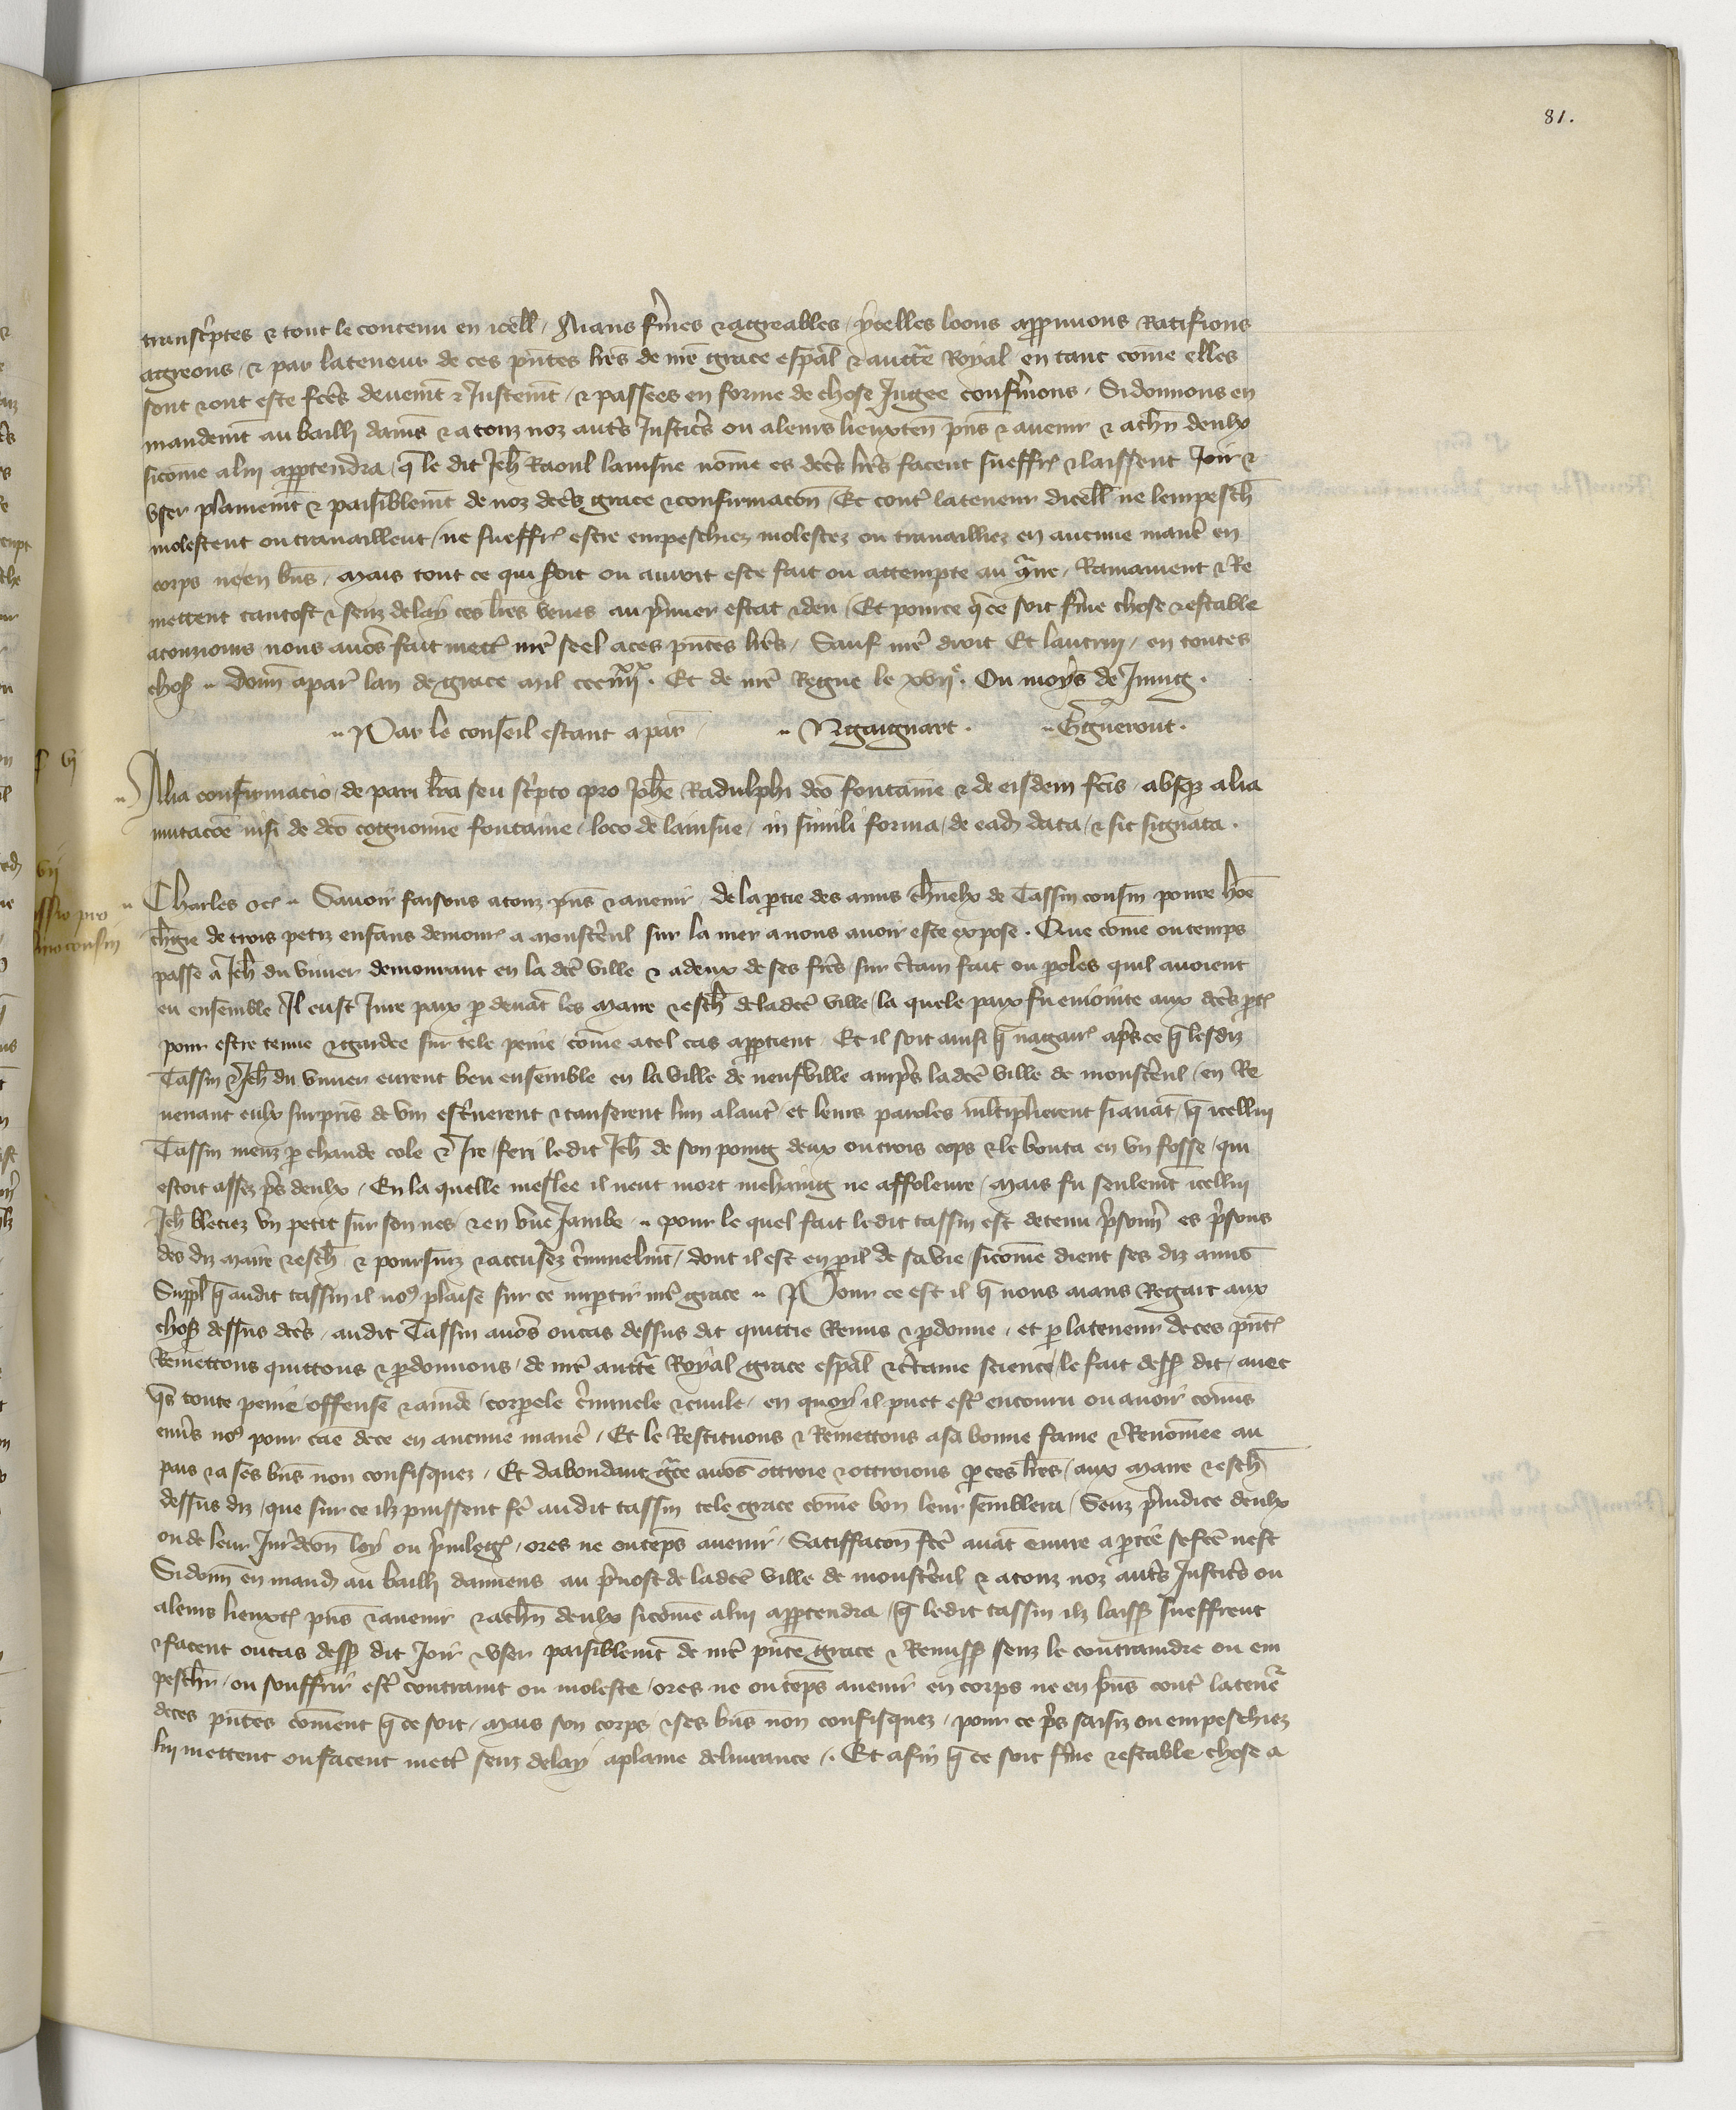 81.
transcriptes & tout le contenu en icell Aians fmes & agreables ycelles loons appruuons Ratifions
aggreons & par la teneur de ces pntes lres de nre grace espal & auctte Royal en tant come elles
sont & ont este fces deuemt & Justemt & passees en forme de chose Jugee confmons. Si donnons en
mandemt au bailli damiens & a touz noz autres Justic's ou a leurs lieuxten pns & auenir & a chun deulx
sicome a lui appartendra q le dit Jeh Raoul lainsne nome es dces lres facent sueffr & laissent Joir &
vser plainemt & paisiblemt de noz dces grace & confirmacon Et contre la teneur dicell ne lempesch
molestent ou trauaillent ne sueffr estre empeschiez molestez ou trauailliez en aucune manie en
corps ne en biens mais tout ce qui soit ou auroit este fait ou attempte au qtre Ramainent & Re
mettent tantost & senz delay ces lres veues au pmier estat & deu Et pource q ce soit fme chose & estable
a touziours nous auos fait mettr nre seel a ces pntes lres Sauf nre droit Et lautruy en toutes
chos donn a par lan de grace mil ccc iiii xx. Et de nre Regne le xvii e. Ou moys de Juing.
Par le conseil estant a par N gaignart. G gueront.
f vi
Alia confirmacio de pari lra seu scpto pro Johe Radulphi dco fontaine & de eisdem fcis absqz alia
mutacoe nisi de dco cognomie fontaine loco de lainsne in simili forma de ead data & sic signata.
vii
ssio pro
ino cousin
Charles etc Sauoir faisons a touz pns & auenir de la ptie des amis charnelx de Tassin cousin poure hoe
chgie de trois petiz enfans demour a monsterul sur la mer a nous auoir este expose. Que come ou temps
passe a Jeh du viuier demourant en la dce ville & a deux de ses fres sur ctain fait ou poles quil auoient
eu ensemble Il eust Jure paix p deuat les maire & esch de la dce ville la quele paix fu eniointe aux dces pt
pour estre tenue & gardee sur tele peine come a tel cas apptient Et il soit ainsi q nagair aps ce q lesdiz
Tassin & Jeh du viuier eurent beu ensemble en la ville de neufville aups la dce ville de monsterul en Re
uenant eulx surpris de vin estriuerent & tanserent lun a lautre et leurs paroles multiplierent si auat q icellui
Tassin meuz p chaude cole & Ire feri ledit Jeh de son poing deux ou trois cops & le bouta en vn fosse qui
estoit assez ps deulx En la quelle meslee il neut mort mehaing ne affoleure mais fu seulemt icellui
Jeh bleciez vn petit sur son nes & en vne Jambe pour le quel fait ledit tassin est detenu psonn es psons
des diz maire & esch & poursuiz & accusez cminelmt dont il est en pil de sa vie sicome dient ses diz amis
Suppl q audit tassin il nos plaise sur ce impartir nre grace Pour ce est il q nous aians Regart aux
chos dessus dces audit Tassin auos ou cas dessus dit quittie Remis & pdonne et p la teneur de ces pnt
Remettons quittons & pdonnons de nre auctte Royal grace espal & ctaine science le fait dess dit auec
qs toute peine offense & amde corpele cminele & ciuile en quoy il puet estr encouru ou auoir comis
enus nos pour cae de ce en aucune manie Et le Restituons & Remettons a sa bonne fame & Renomee au
pais & a ses bns non confisquez Et dabondant gce auos ottroie & ottroions p ces lres aux maire & esch
dessus diz que sur ce ilz puissent fe audit tassin tele grace come bon leur semblera Senz pjudice deulx
ou de leur Juridcon loy ou priuileg ores ne ou teps auenir Satiffacon fce auat euure a ptie se fce nest
Si donn en mand au bailli damiens au puost de la dce ville de monsterul & a touz noz autres Justic's ou
a leurs lieuxt pns & auenir & a chun deulx sicome a lui appartendra q ledit tassin ilz laiss sueffrent
& facent ou cas dess dit Joir & vser paisiblemt de nre pnte grace & Remiss senz le contraindre ou em
peschr ou souffrir estr contraint ou moleste ores ne ou teps auenir en corps ne en bns contre la tene
de ces pntes coment q ce soit mais son corps & ses bns non confisquez pour ce ps saisiz ou empeschiez
lui mettent ou facent mettr senz delay a plaine deliurance Et afin q ce soit fme & estable chose a